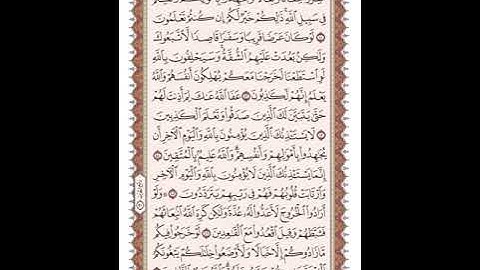 فِى سَبِيلِ ٱللَّهِ ذَٰلِكُمْ خَيْرٌ لَّكُمْ إِن كُنتُمْ تَعْلَمُونَ
لَوْ كَانَ عَرَضًا قَرِيبًا وَسَفَرًا قَاصِدًا لَّٱتَّبَعُوكَ
وَلَـٰكِنۢ بَعُدَتْ عَلَيْهِمُ ٱلشُّقَّةُ وَسَيَحْلِفُونَ بِٱللَّهِ
لَوِ ٱسْتَطَعْنَا لَخَرَجْنَا مَعَكُمْ يُهْلِكُونَ أَنفُسَهُمْ وَٱللَّهُ
يَعْلَمُ إِنَّهُمْ لَكَـٰذِبُونَ ٤٢ عَفَا ٱللَّهُ عَنكَ لِمَ أَذِنتَ لَهُمْ
حَتَّىٰ يَتَبَيَّنَ لَكَ ٱلَّذِينَ صَدَقُوا۟ وَتَعْلَمَ ٱلْكَـٰذِبِينَ
لَا يَسْتَـْٔذِنُكَ ٱلَّذِينَ يُؤْمِنُونَ بِٱللَّهِ وَٱلْيَوْمِ ٱلْـَٔاخِرِ أَن
يُجَـٰهِدُوا۟ بِأَمْوَٰلِهِمْ وَأَنفُسِهِمْ وَٱللَّهُ عَلِيمٌۢ بِٱلْمُتَّقِينَ
إِنَّمَا يَسْتَـْٔذِنُكَ ٱلَّذِينَ لَا يُؤْمِنُونَ بِٱللَّهِ وَٱلْيَوْمِ ٱلْـَٔاخِرِ
وَٱرْتَابَتْ قُلُوبُهُمْ فَهُمْ فِى رَيْبِهِمْ يَتَرَدَّدُونَ ٤٥ وَلَوْ
أَرَادُوا۟ ٱلْخُرُوجَ لَأَعَدُّوا۟ لَهُۥ عُدَّةً وَلَـٰكِن كَرِهَ ٱللَّهُ ٱنۢبِعَاثَهُمْ
فَثَبَّطَهُمْ وَقِيلَ ٱقْعُدُوا۟ مَعَ ٱلْقَـٰعِدِينَ ٤٦ لَوْ خَرَجُوا۟ فِيكُم
مَّا زَادُوكُمْ إِلَّا خَبَالًا وَلَأَوْضَعُوا۟ خِلَـٰلَكُمْ يَبْغُونَكُمُ